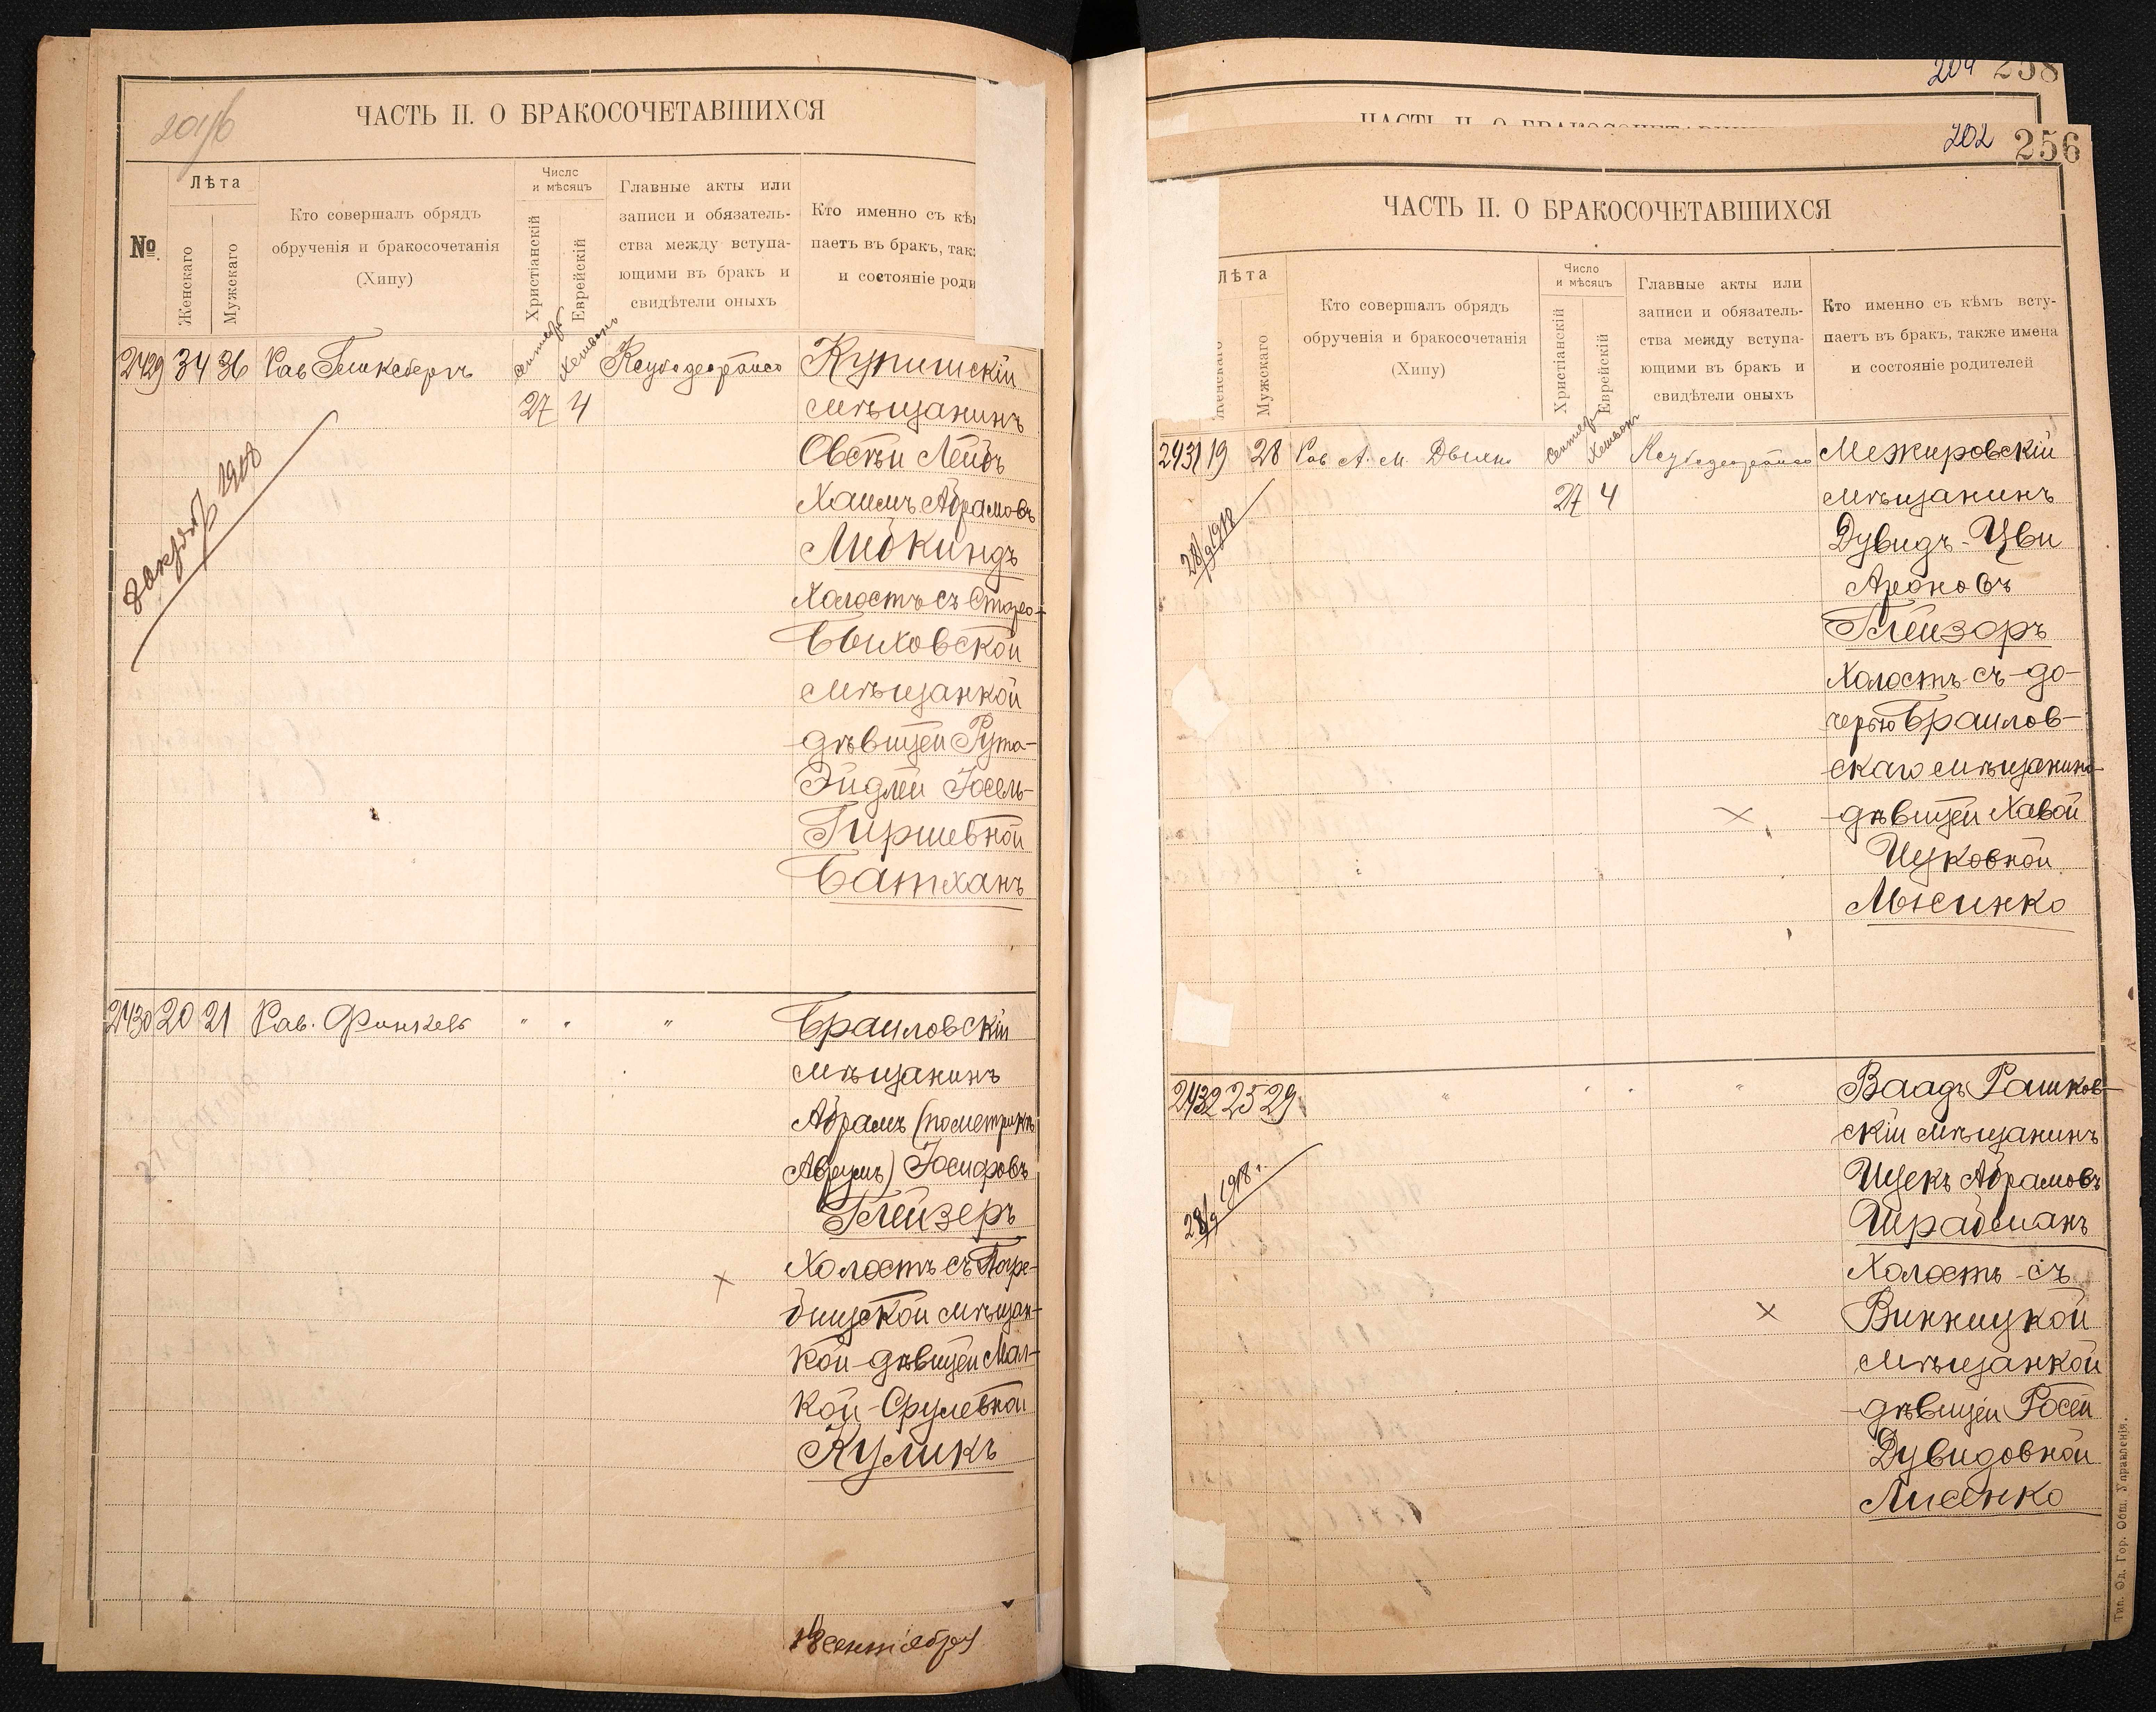 201/б
ЧАСТЬ II. О БРАКОСОЧЕТАВШИХСЯ
№
Лѣта
Женскаго
Мужскаго
Кто совершалъ обрядъ
обрученія и бракосочетанія
(Хипу)
Число
и мѣсяцъ
Христіанскій
Еврейскій
Главные акты или
записи и обязатель-
ства между вступа-
ющими въ бракъ и
свидѣтели оныхъ
Кто именно съ кѣм
паетъ въ бракъ, так
и состояніе роди
2429 34 36 Рав
27 4
1918
Купишскій
мѣщанинъ
Овсѣй Лейбъ
Хаимъ Абрамовъ
Либкиндъ
Холостъ съ Старо-
Быховской
мѣщанкой
дѣвицей Рута-
Эйдлей Іосель-
Гиршевной
Батханъ
2430 20 21 Рав. " " "
Браиловскій
мѣщанинъ
Абрамъ (по метрикѣ
Аврумъ) Іосифовъ
Глейзеръ
Холостъ съ
мѣщан-
кой дѣвицей Мал-
кой Срулевной
Куликъ
сентября
204 258
ЧАСТЬ II. О БРАКОСОЧЕТАВШИХСЯ
202 256
ЧАСТЬ II. О БРАКОСОЧЕТАВШИХСЯ
Лѣта
Женскаго
Мужскаго
Кто совершалъ обрядъ
обрученія и бракосочетанія
(Хипу)
Число
и мѣсяцъ
Христіанскій
Еврейскій
Главные акты или
записи и обязатель-
ства между вступа-
ющими въ бракъ и
свидѣтели оныхъ
Кто именно съ кѣмъ всту-
паетъ въ бракъ, также имена
и состояніе родителей
2431 19 28 Рав А. М.
27 4
28/9 1918
Межировскій
мѣщанинъ
Дувидъ-Цви
Ароновъ
Глейзоръ
Холостъ съ до-
черью Браилов-
скаго мѣщанина
дѣвицей Хавой
Ицковной
Лысинко
2432 25 29 " " " "
28/9 1918 г.
Ваадъ Рашков-
скій мѣщанинъ
Ицекъ Абрамовъ
Шрабманъ
Холостъ съ
Винницкой
мѣщанкой
дѣвицей Росей
Дувидовной
Лисенко
Тип. Од. Гор. Общ. Управленія.